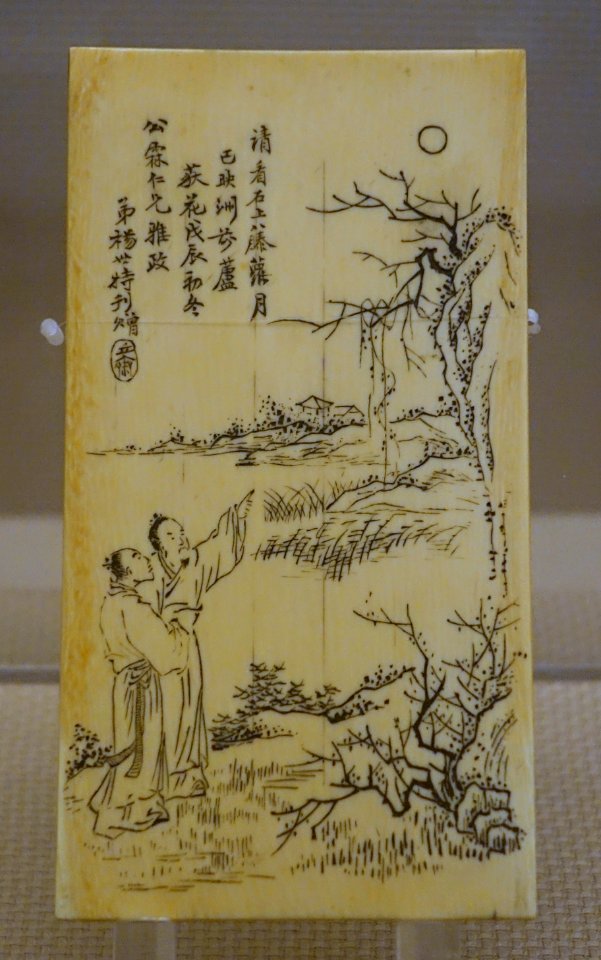 請看石上藤蘿月
已映洲前蘆
荻花戊辰初冬
公霖仁兄雅政
弟楊世特刊贈